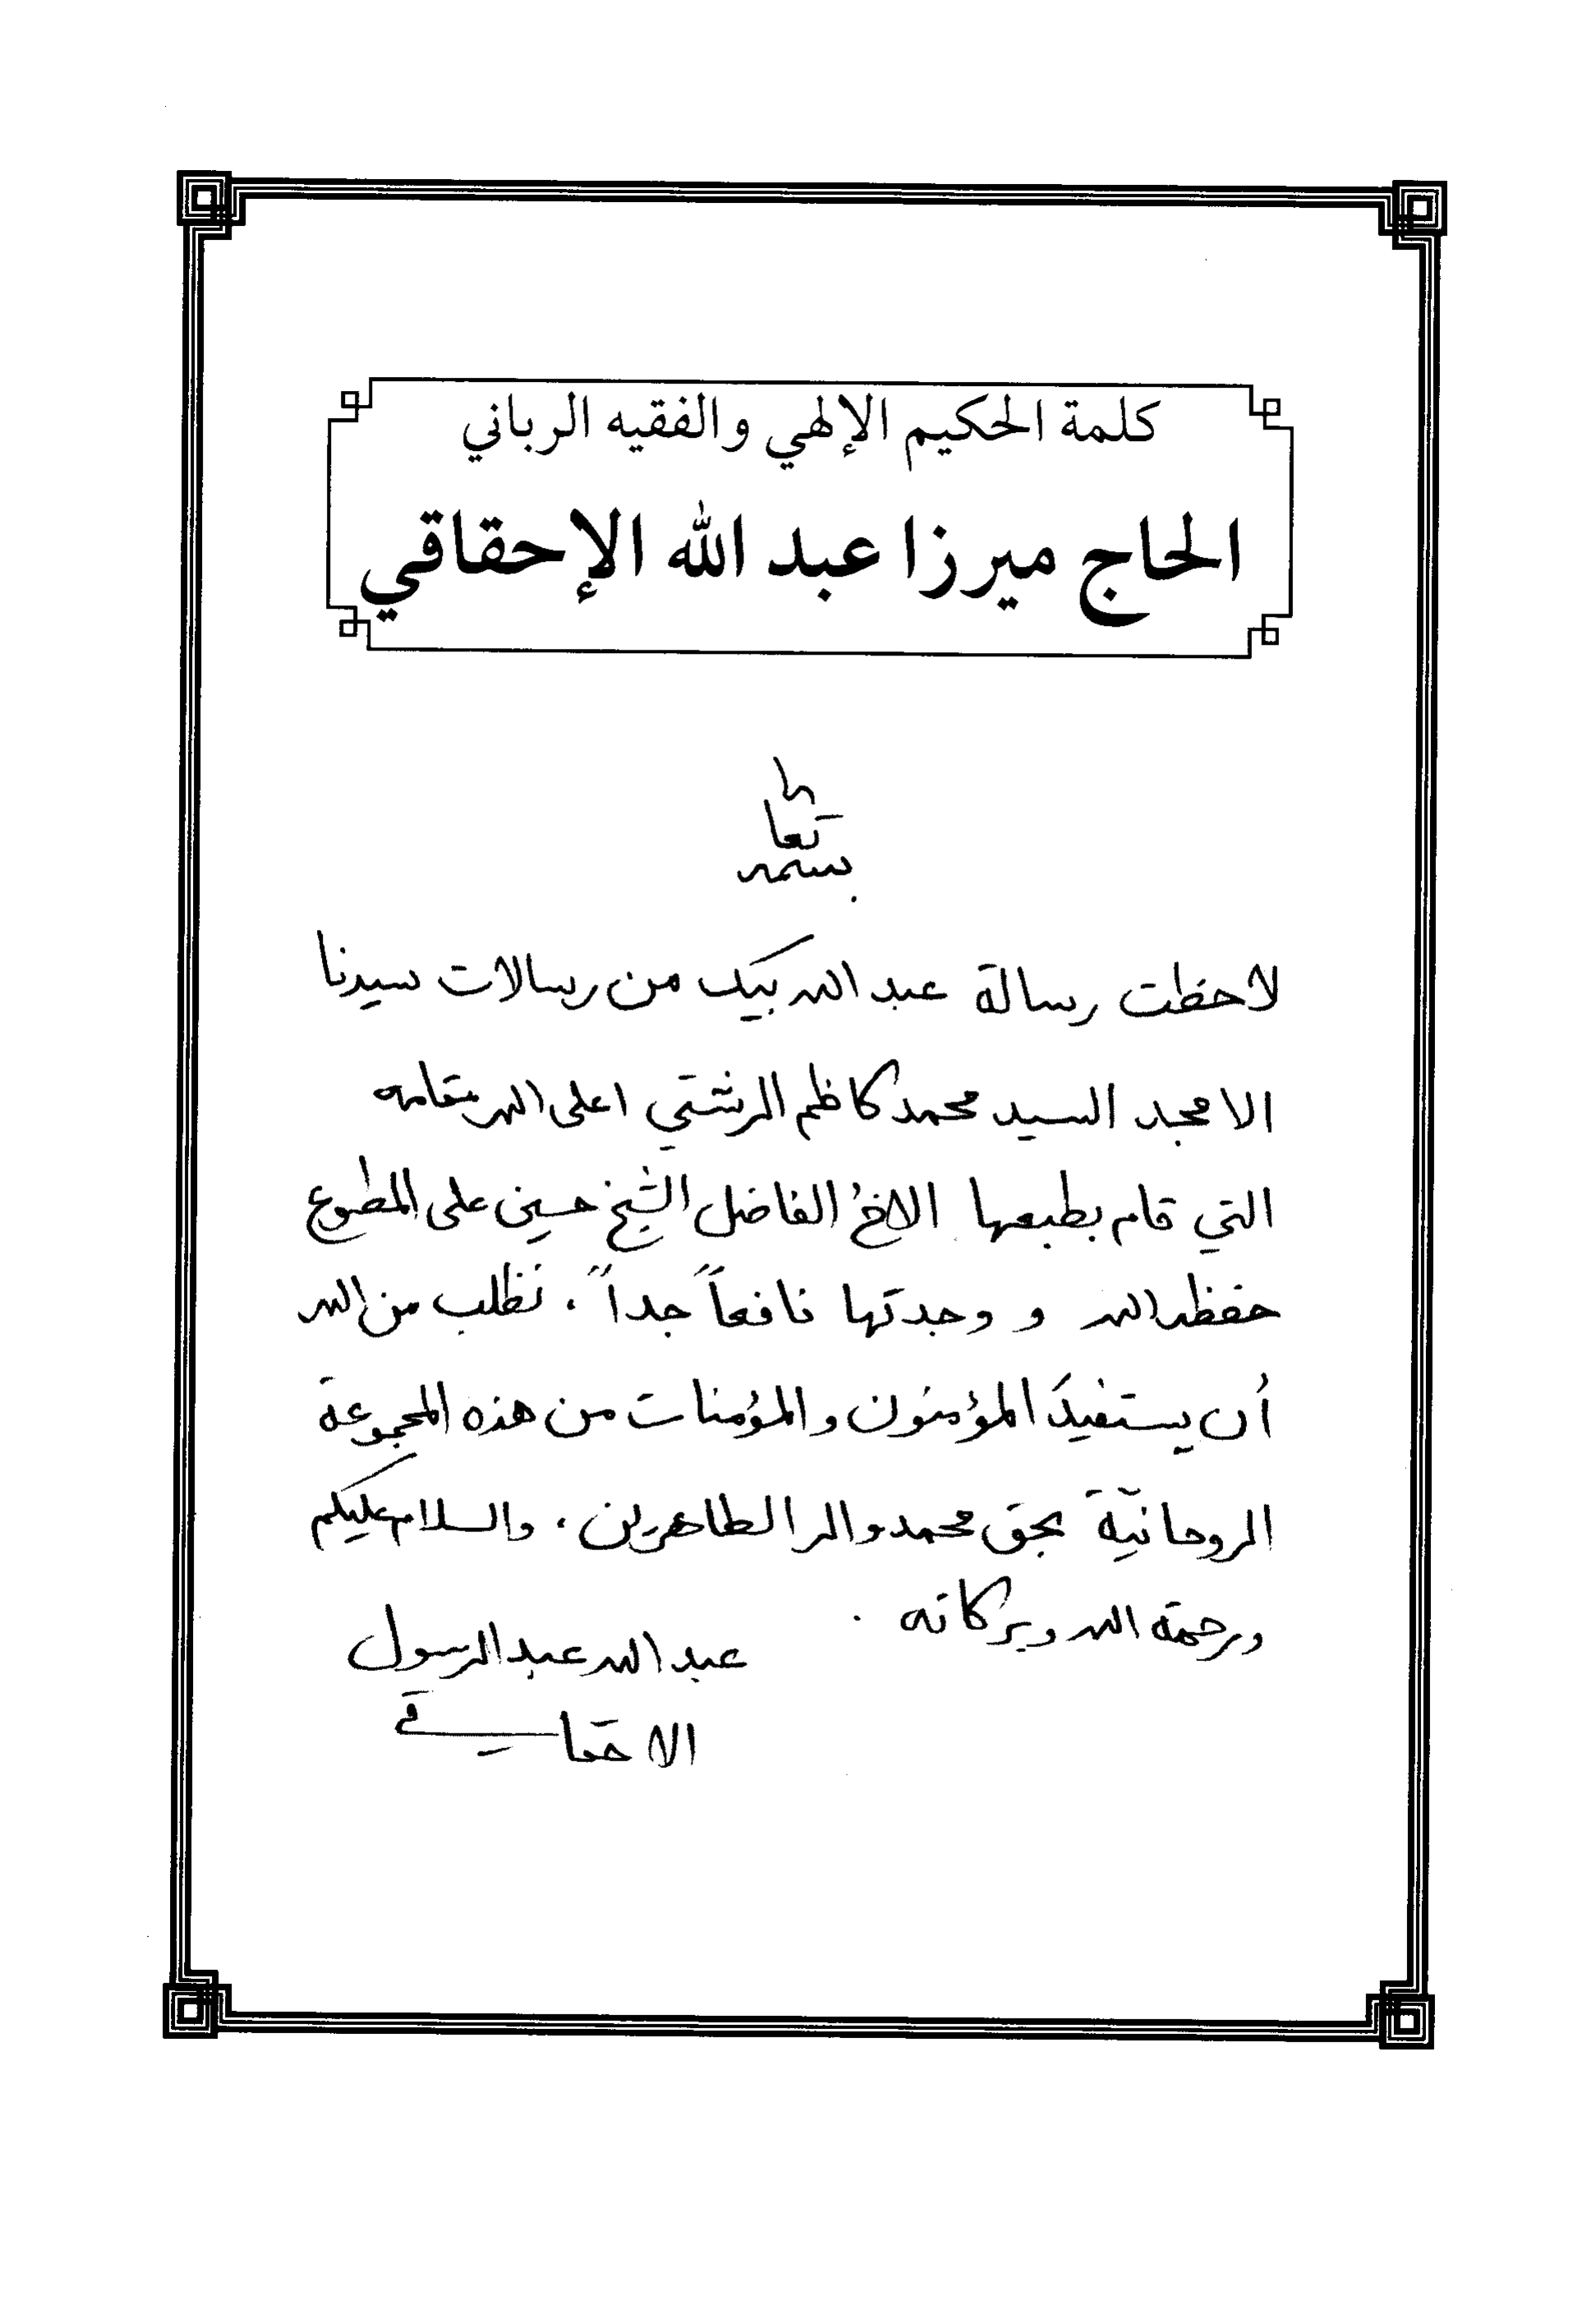 كلمة الحكيم الإلهي والفقيه الرباني
الحاج ميرزا عبد الله الإحقاقي
بسمه تعالى
لاحظت رسالة عبد الله بيك من رسالات سيدنا
الامجد السيد محمد كاظم الرشتي اعلى الله مقامه
التي قام بطبعها الاخُ الفاضل الشيخ حسين علي المطوع
حفظه الله و وجدتها نافعاً جداً، نطلب من الله
أن يستفيدَ المؤمنون والمؤمنات من هذه المجموعة
الروحانيّة بحق محمد واله الطاهرين، والسلام عليكم
ورحمة الله وبركاته .
عبد الله عبد الرسول
الاحقاقي